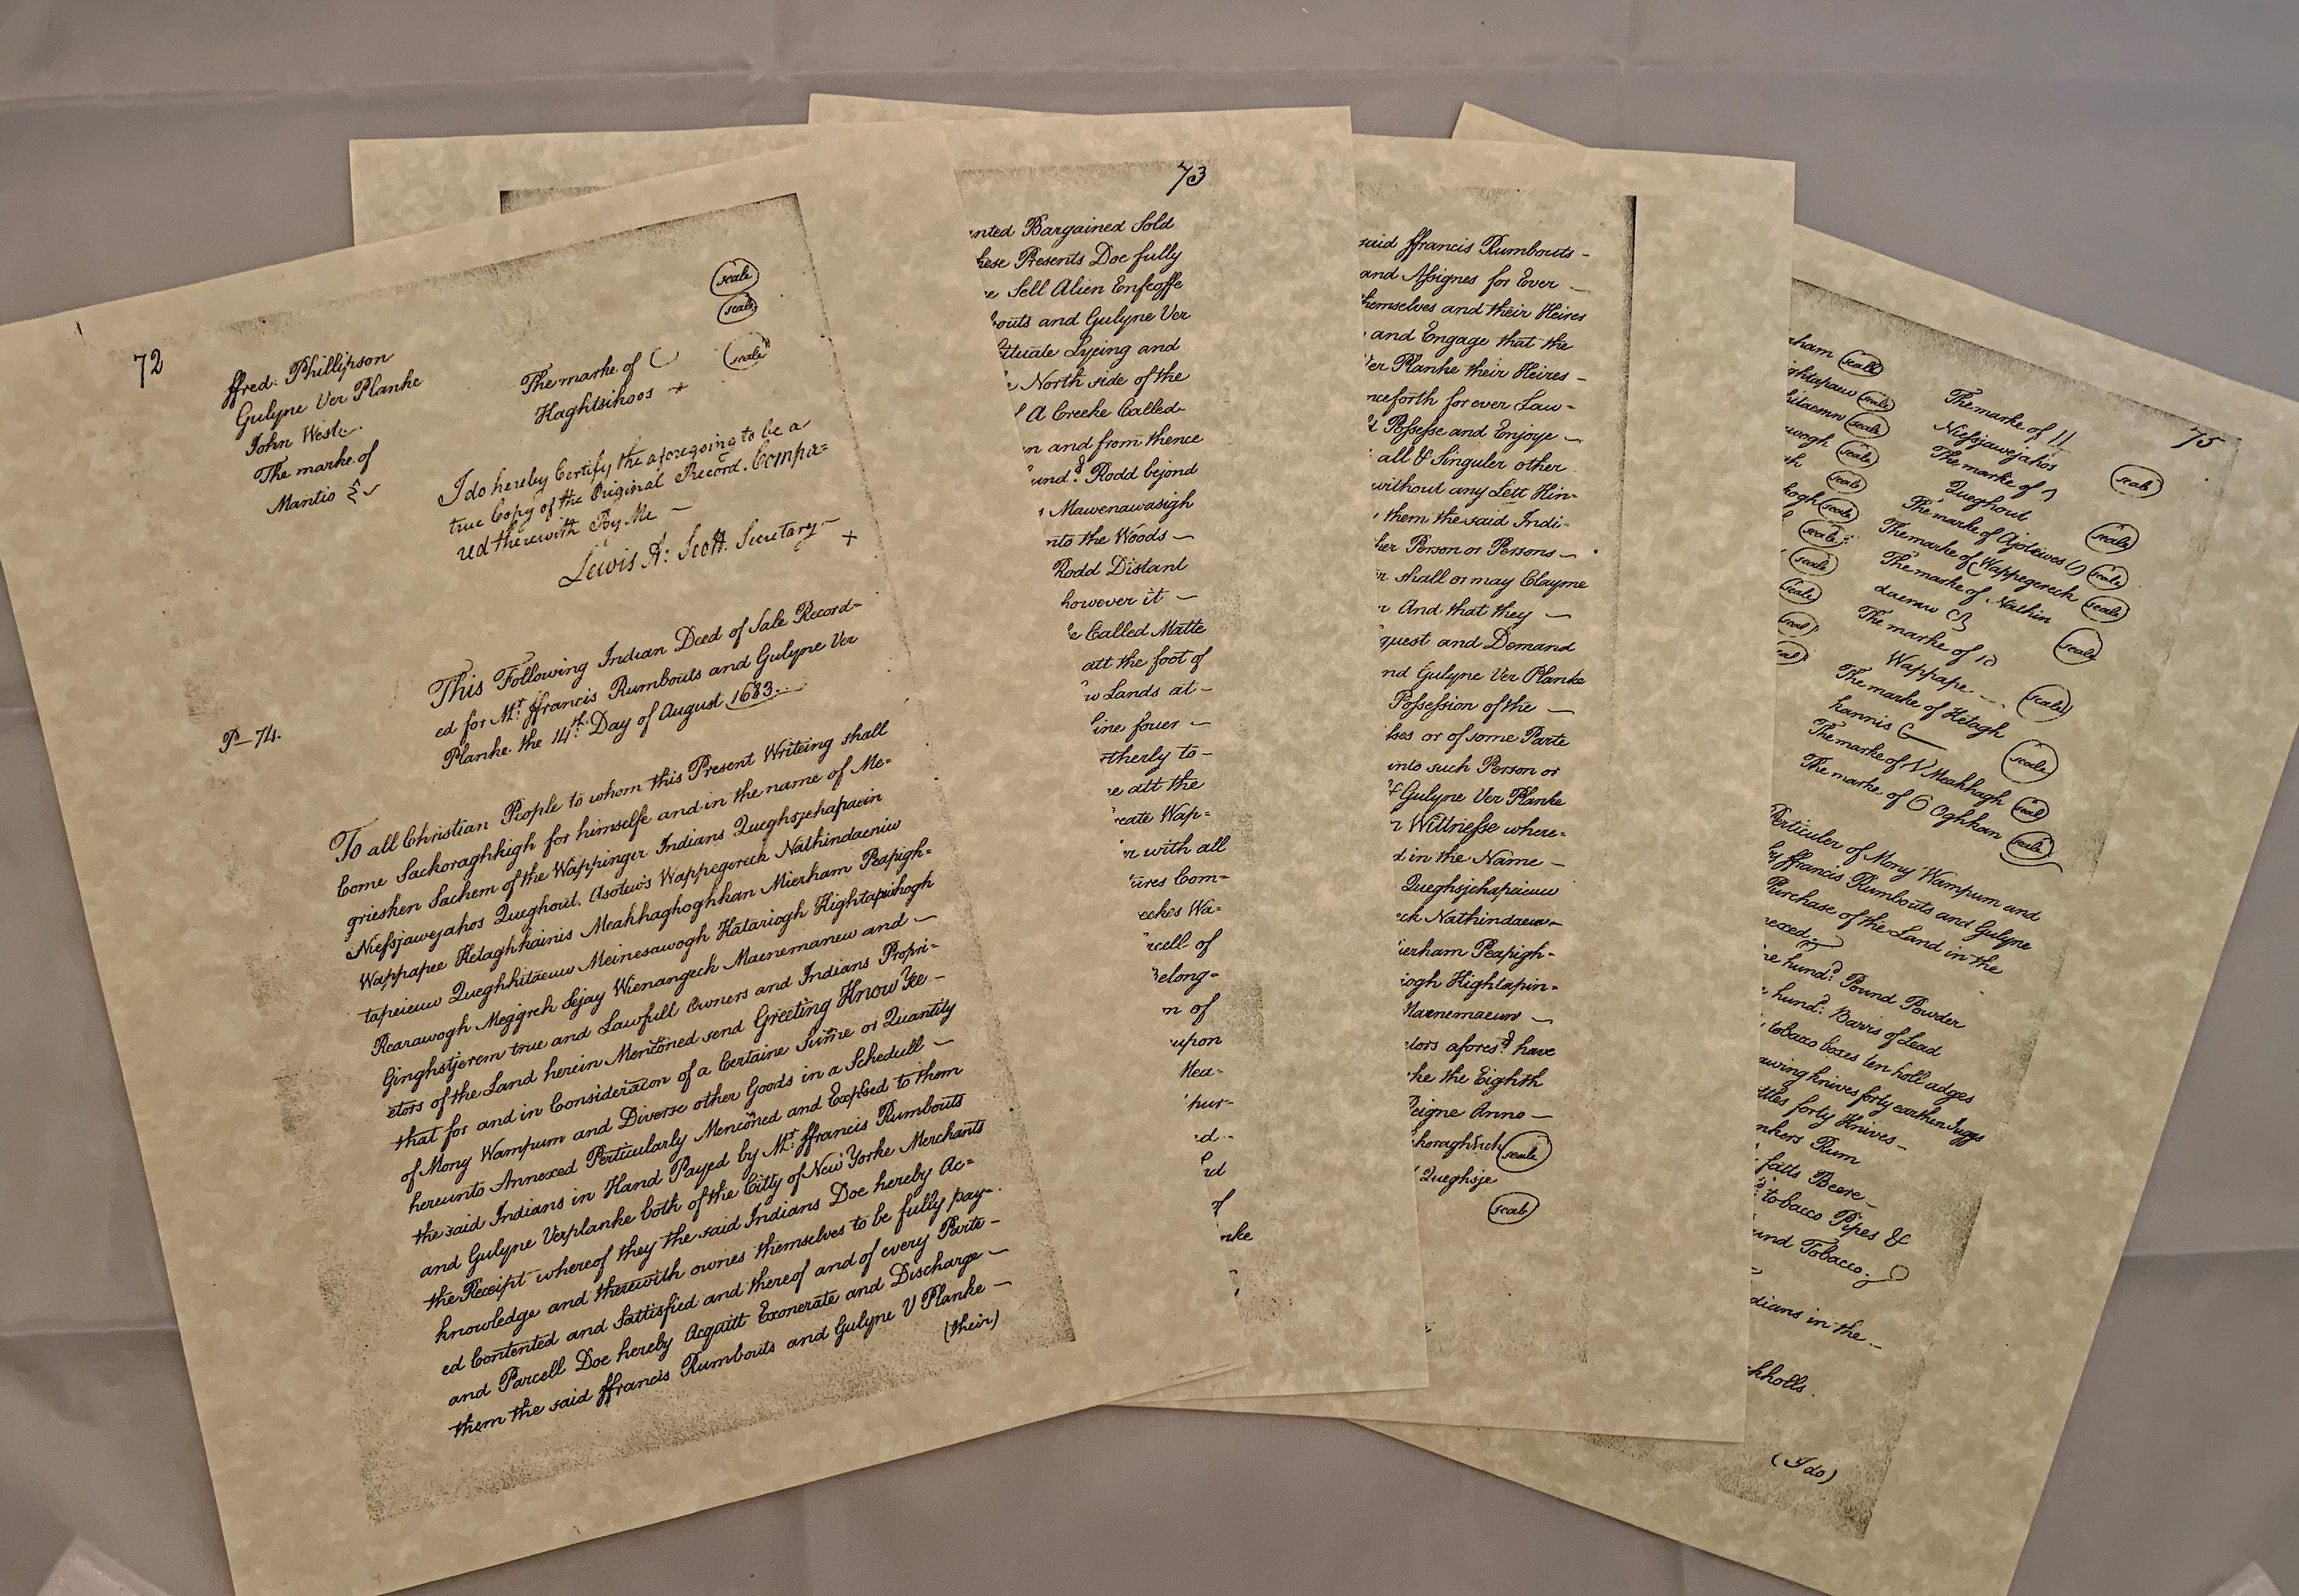 72
ffred. Phillipson
Gulyne Ver Planke
John West.
The marke of
Mantio
The marke of
Haghtsikoos +
seale
seale
seale
I do hereby Certify the aforegoing to be a
true Copy of the Original Record. Compa=
red therewith By Me —
Lewis A: Scott. Secretary —
+
This Following Indian Deed of Sale Record=
ed for Mr. ffrancis Rumbouts and Gulyne Ver
Planke. the 14th. Day of August 1683.
P—74.
To all Christian People to whom this Present Writeing shall
Come Sackoraghkigh for himselfe and in the name of Me=
grieshen Sachem of the Wappinger Indians Queghsjehapaein
Niessjawejahos Queghout. Asotewis Wappegereck Nathindaeniw
Wappapee Ketaghkainis Meakhaghoghkan Mierham Peapigh=
tapeieuw Queghhitaeuw Meinesawogh Katariogh Kightapiuhogh
Rearawogh Meggreh Sejay Wienangeck Maenemanew and —
Ginghstjerem true and Lawfull Owners and Indians Propri=
etors of the Land herein Mencõned send Greeting Know Yee —
that for and in Consideracon of a Certaine Sume or Quantity
of Mony Wampum and Diverse other Goods in a Schedull —
hereunto Annexed Perticularly Mencõned and Expssed to them
the said Indians in Hand Payed by Mr: ffrancis Rumbouts
and Gulyne Verplanke both of the Citty of New Yorke Merchants
the Receipt whereof they the said Indians Doe hereby Ac=
knowledge and therewith ownes themselves to be fully pay=
ed Contented and Sattisfied and thereof and of every Parte —
and Parcell Doe hereby Acquitt Exonerate and Discharge —
them the said ffrancis Rumbouts and Gulyne V Planke —
(their)
73
nted Bargained Sold
hese Presents Doe fully
e Sell Alien Enfeoffe
bouts and Gulyne Ver
ituate Lyeing and
e North side of the
A Creeke Called
n and from thence
und.d Rodd bejond
Mawenawasigh
nto the Woods —
Rodd Distant
however it —
e Called Matte
att the foot of
w Lands at —
line fouer —
rtherly to —
re att the
reate Wap=
r with all
ures Com=
eekes Wa=
rcell of
Belong=
m of
upon
Mea=
hur=
ed
nd
of
nke
said ffrancis Rumbouts —
and Assignes for Ever —
themselves and their Heires
and Engage that the
Ver Planke their Heires —
nceforth forever Law=
d Possesse and Enjoye —
all & Singuler other
without any Lett Hin=
them the said Indi=
her Person or Persons —
r shall or may Clayme
r And that they —
quest and Demand
nd Gulyne Ver Planke
Possession of the —
ises or of some Parte
into such Person or
Gulyne Ver Planke
n Wittnesse where=
d in the Name —
Queghsjehapeieuw
ck Nathindaeuw
ierham Peapigh=
iogh Hightapin=
Maenemaeuw —
etors afores.d have
ke the Eighth
Reigne Anno —
koraghkich seale
Queghsje
seale
75
rham seale
ightapaw seale
hitaemn seale
wogh seale
ah seale
kogh seale
seale
seale
seale
seale
seale
The marke of 11
Niessjawejahos
seale
The marke of
Queghout
seale
The marke of Ajoteiwes seale
The marke of Wappegereck seale
The marke of Nathin
daeraw
seale
The marke of 10
Wappape
seale
The marke of Ketagh
hannis
seale
The marke of V Meakhagh seale
The marke of O Oghkan seale
Perticuler of Mony Wampum and
by ffrancis Rumbouts and Gulyne
Purchase of the Land in the
nexed.
ne hund.d Pound Powder
hund.d Barrs of Lead
tobacco boxes ten holl adges
awing knives forty earthen Juggs
ttles forty Knives —
nkers Rum
fatts Beere —
tobacco Pipes &
und Tobacco.
dians in the —
kholls.
(I do)